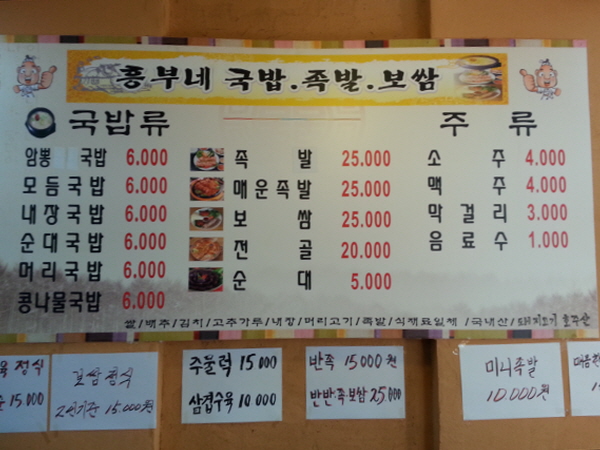 흥부네 국밥.족발.보쌈
국밥류
주류
암뽕 국밥 6.000 족발 25.000 소주 4.000
모듬국밥 6.000 매운족발 25.000 맥주 4.000
내장국밥 6.000 보쌈 25.000 막걸리 3.000
순대국밥 6.000 전골 20.000 음료수 1.000
머리국밥 6.000 순대 5.000
콩나물국밥 6.000
쌀/배추/김치/고추가루/내장/머리고기/족발/식재료일체/국내산/돼지고기 호주산
육 정식
15,000
보쌈정식
2인기준 15.000원
주물럭 15,000
삼겹수육 10,000
반족 15,000원
반반:족보쌈 25,000
미니족발
10,000원